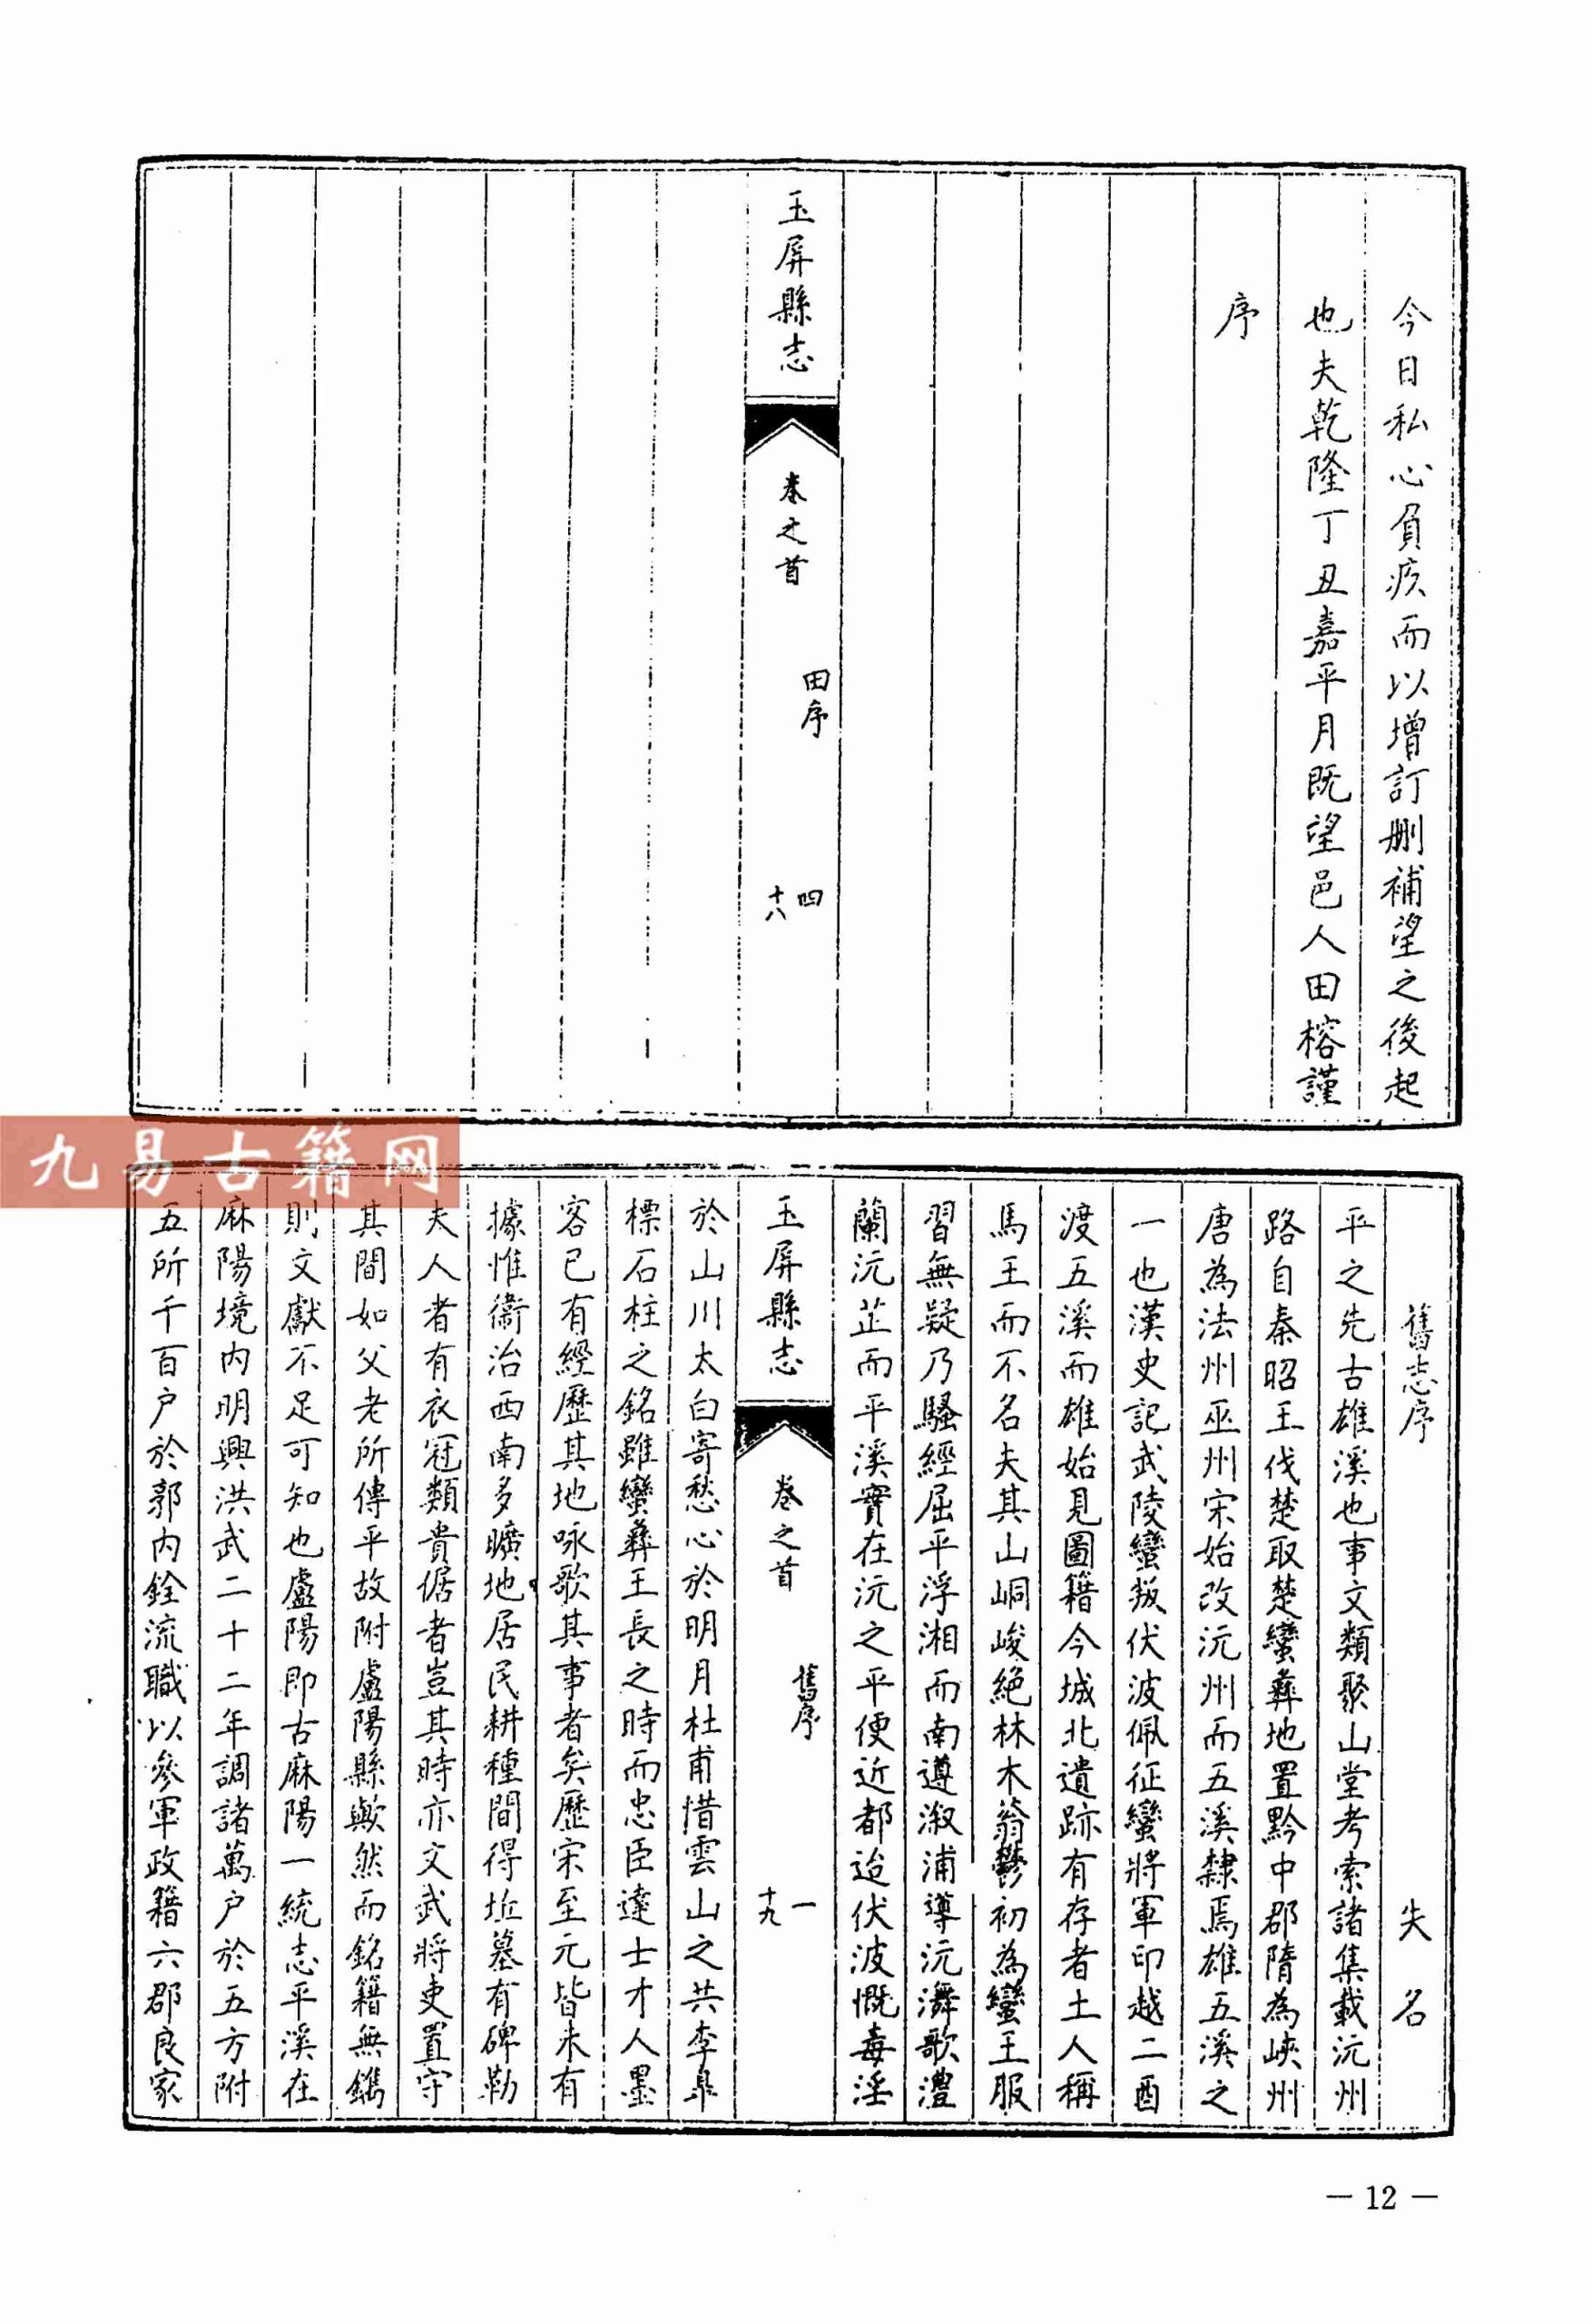 今日私心負疚而以增訂刪補望之後起
也夫乾隆丁丑嘉平月既望邑人田榕謹
序
玉屏縣志
卷之首
田序
四
十八
九易古籍网
舊志序
失名
平之先古雄溪也事文類聚山堂考索諸集載沅州
路自秦昭王伐楚取楚蠻彝地置黔中郡隋為峽州
唐為法州巫州宋始改沅州而五溪隸焉雄五溪之
一也漢史記武陵蠻叛伏波佩征蠻將軍印越二酉
渡五溪而雄始見圖籍今城北遺跡有存者土人稱
馬王而不名夫其山峒峻絶林木蓊鬱初為蠻王服
習無疑乃騷經屈平浮湘而南遵溆浦導沅濟歌澧
蘭沅芷而平溪實在沅之平便近都迨伏波慨毒淫
玉屏縣志
卷之首
舊序
一
十九
於山川太白寄愁心於明月杜甫惜雲山之共李臯
標石柱之銘雖蠻彝王長之時而忠臣達士才人墨
客已有經歷其地咏歌其事者矣歷宋至元皆未有
據惟衛治西南多曠地居民耕種間得坵墓有碑勒
夫人者有衣冠類貴倨者豈其時亦文武將吏置守
其間如父老所傳平故附盧陽縣歟然而銘籍無鐫
則文獻不足可知也盧陽即古麻陽一統志平溪在
麻陽境内明興洪武二十二年調諸萬户於五方附
五所千百户於郭内銓流職以參軍政籍六郡良家
— 12 —